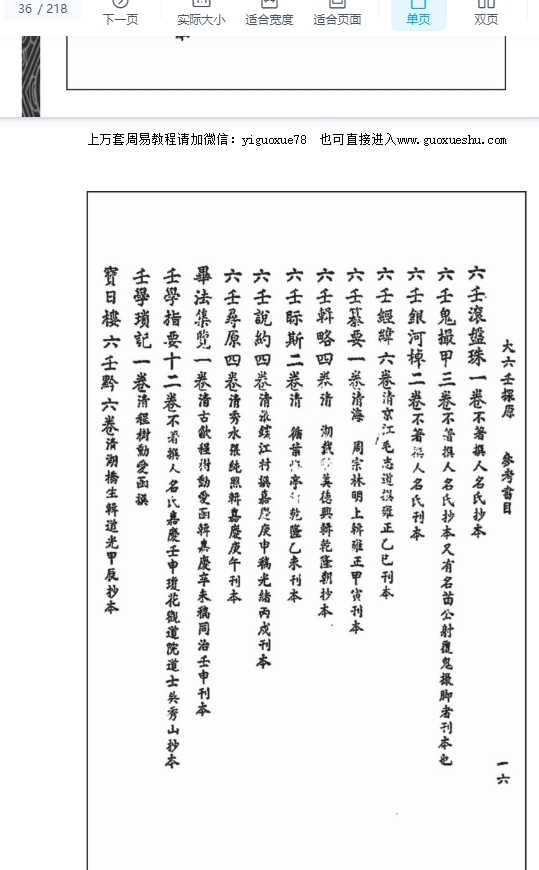 36 / 218
下一页
实际大小
适合宽度
适合页面
单页
双页
本
上万套周易教程请加微信：yiguoxue78 也可直接进入www.guoxueshu.com
大六壬探原 參考書目
一六
六壬滚盤珠一卷不著撰人名氏抄本
六壬鬼撮甲三卷不著撰人名氏抄本又有名苗公射覆鬼撮脚者刊本也
六壬銀河棹二卷不著撰人名氏刊本
六壬經緯六卷清京江毛志道撰雍正乙巳刊本
六壬纂要一卷清海 周宗林明上輯雍正甲寅刊本
六壬輯略四卷清 湖 英德興輯乾隆朝抄本
六壬眎斯二卷清 循葉 亭 乾隆乙未刊本
六壬說約四卷清張 江村撰嘉慶庚申稿光緒丙戌刊本
六壬尋原四卷清秀水張純照輯嘉慶庚午刊本
畢法集覽一卷清古歙程樹勳愛函輯嘉慶辛未稿同治壬申刊本
壬學指要十二卷不著撰人名氏嘉慶壬申瓊花觀道院道士吳秀山抄本
壬學瑣記一卷清程樹勳愛函撰
寶日樓六壬黔六卷清湖橋生輯道光甲辰抄本